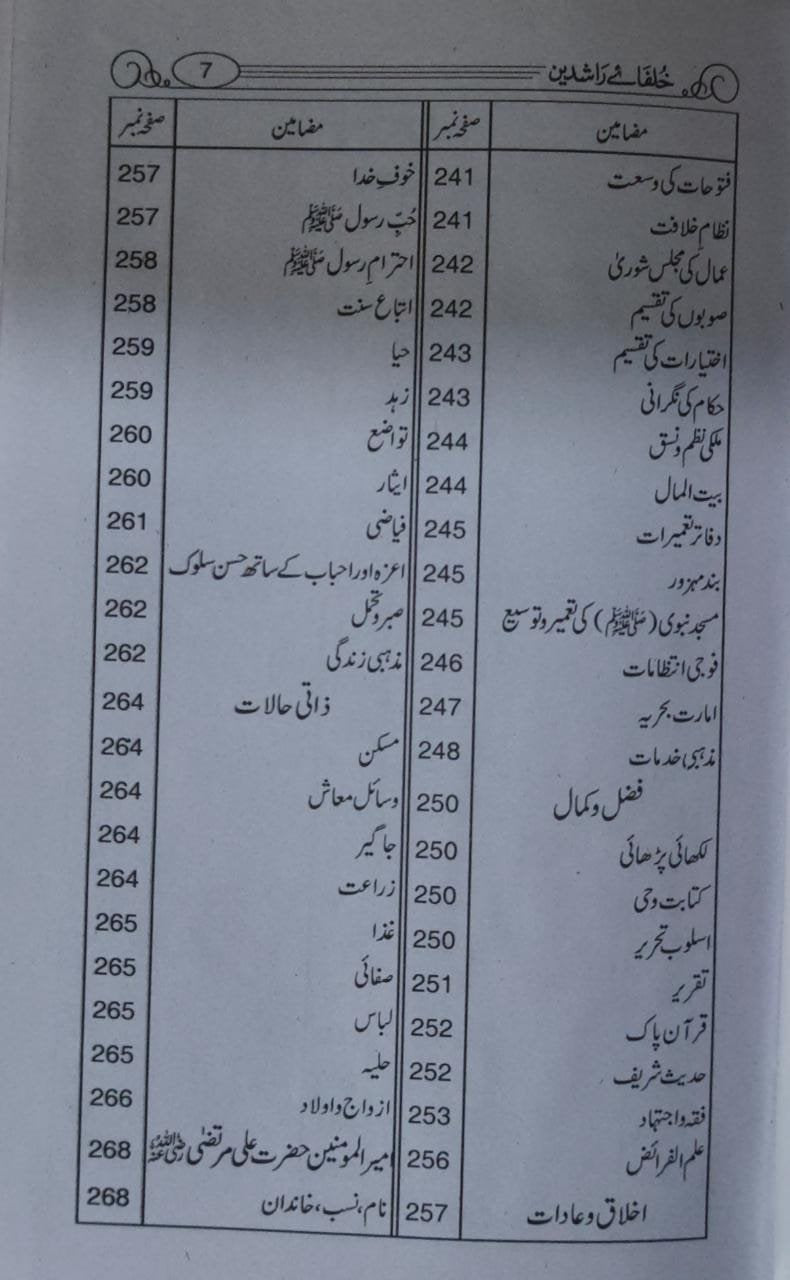 خُلفائے رَاشدین 7
مضامین صفحہ نمبر
فتوحات کی وسعت 241
نظامِ خلافت 241
عمال کی مجلس شوریٰ 242
صوبوں کی تقسیم 242
اختیارات کی تقسیم 243
حکام کی نگرانی 243
ملکی نظم و نسق 244
بیت المال 244
دفاتر تعمیرات 245
بند مہزور 245
مسجد نبوی (ﷺ) کی تعمیر و توسیع 245
فوجی انتظامات 246
امارت بحریہ 247
مذہبی خدمات 248
فضل و کمال 250
لکھائی پڑھائی 250
کتابت وحی 250
اسلوب تحریر 250
تقریر 251
قرآن پاک 252
حدیث شریف 252
فقہ و اجتہاد 253
علم الفرائض 256
اخلاق و عادات 257
مضامین صفحہ نمبر
خوفِ خدا 257
حُبِّ رسول ﷺ 257
احترامِ رسول ﷺ 258
اتباع سنت 258
حیا 259
زہد 259
تواضع 260
ایثار 260
فیاضی 261
اعزہ اور احباب کے ساتھ حسن سلوک 262
صبر و تحمل 262
مذہبی زندگی 262
ذاتی حالات 264
مسکن 264
وسائل معاش 264
جاگیر 264
زراعت 264
غذا 265
صفائی 265
لباس 265
حلیہ 265
ازواج و اولاد 266
امیر المومنین حضرت علی مرتضیٰ رضی اللہ عنہ 268
نام، نسب، خاندان 268